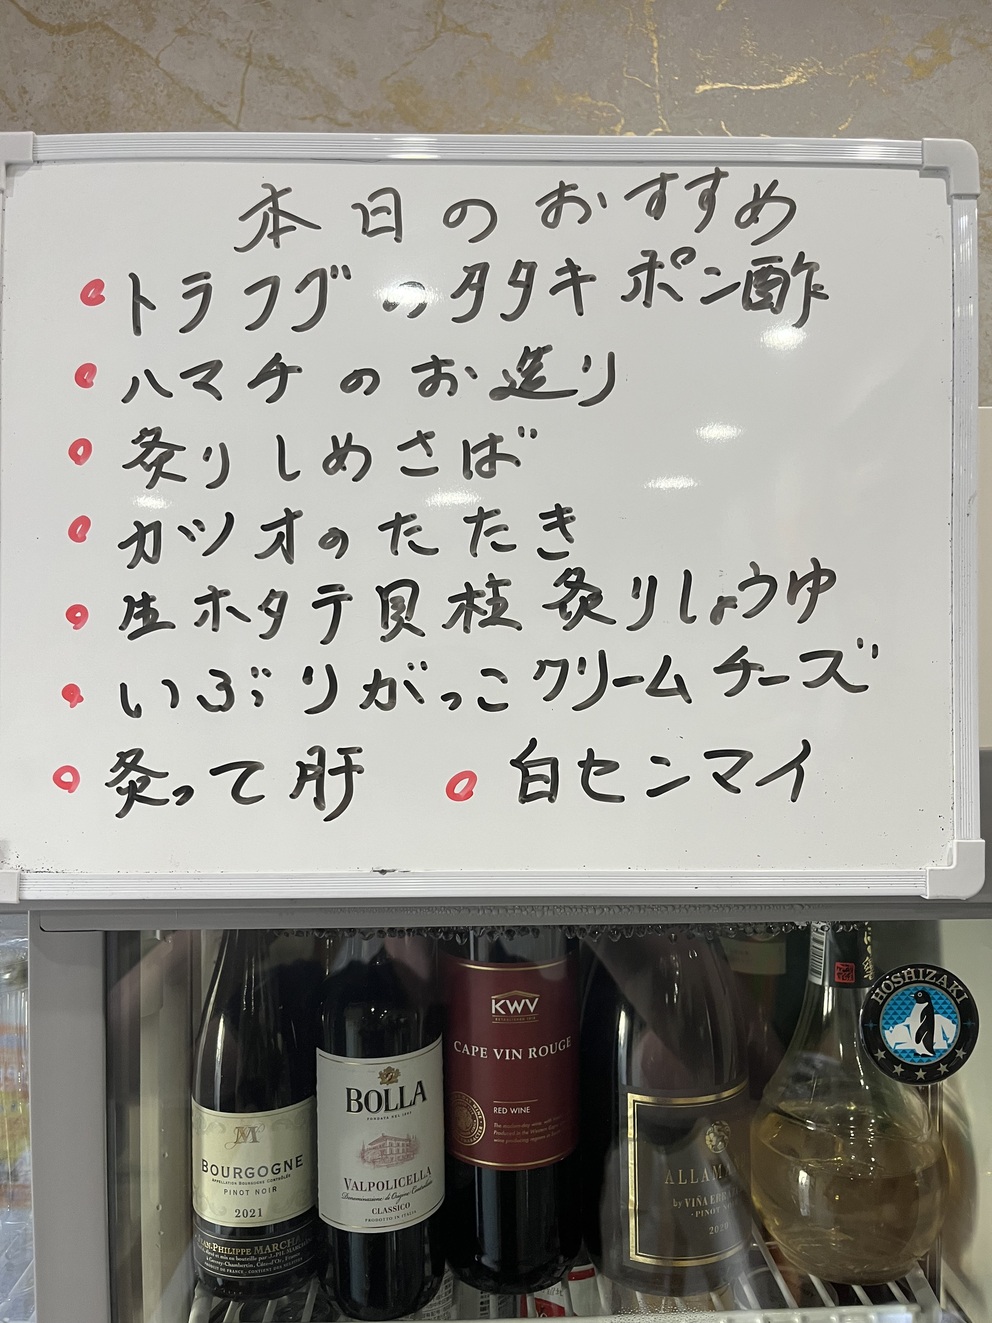 本日のおすすめ
トラフグのタタキ ポン酢
ハマチのお造り
炙りしめさば
カツオのたたき
生ホタテ貝柱 炙りしょうゆ
いぶりがっこクリームチーズ
炙って肝 白センマイ
HOSHIZAKI
JM
BOURGOGNE
APPELLATION BOURGOGNE CONTRÔLÉE
PINOT NOIR
2021
JEAN-PHILIPPE MARCHA
BOLLA
VALPOLICELLA
Denominazione di Origine Controllata
CLASSICO
PRODOTTO IN ITALIA
KWV
CAPE VIN ROUGE
RED WINE
ALLAMA
by VIÑA ER
PINOT